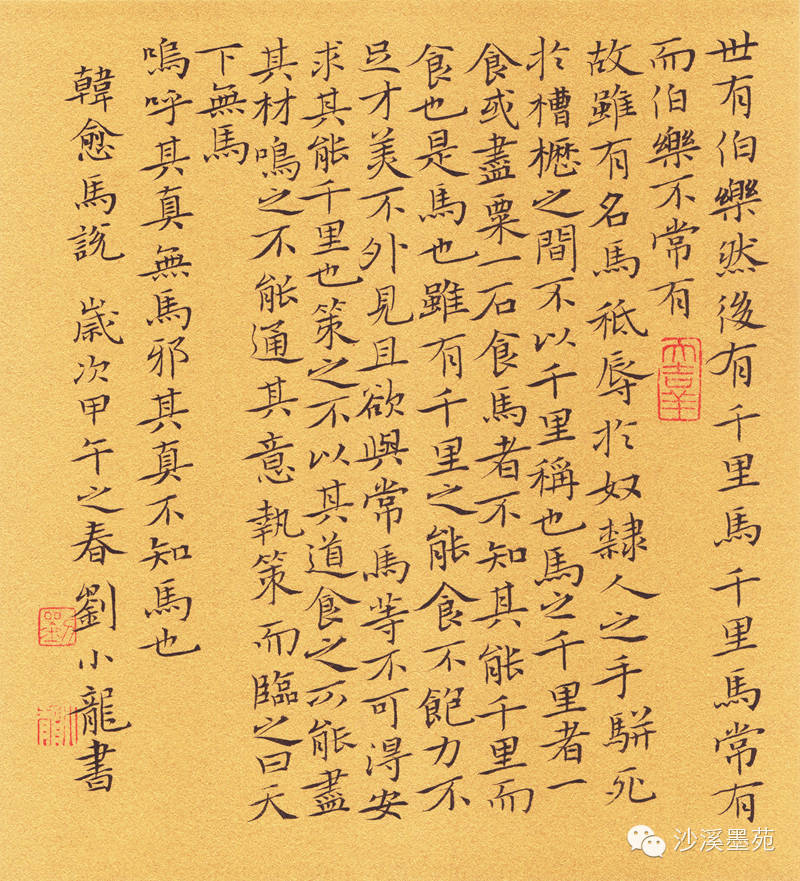 世有伯樂然後有千里馬千里馬常有
而伯樂不常有
大吉羊
故雖有名馬秪辱於奴隸人之手駢死
於槽櫪之間不以千里稱也馬之千里者一
食或盡粟一石食馬者不知其能千里而
食也是馬也雖有千里之能食不飽力不
足才美不外見且欲與常馬等不可得安
求其能千里也策之不以其道食之不能盡
其材鳴之不能通其意執策而臨之曰天
下無馬
嗚呼其真無馬邪其真不知馬也
韓愈馬說 歲次甲午之春劉小龍書
沙溪墨苑